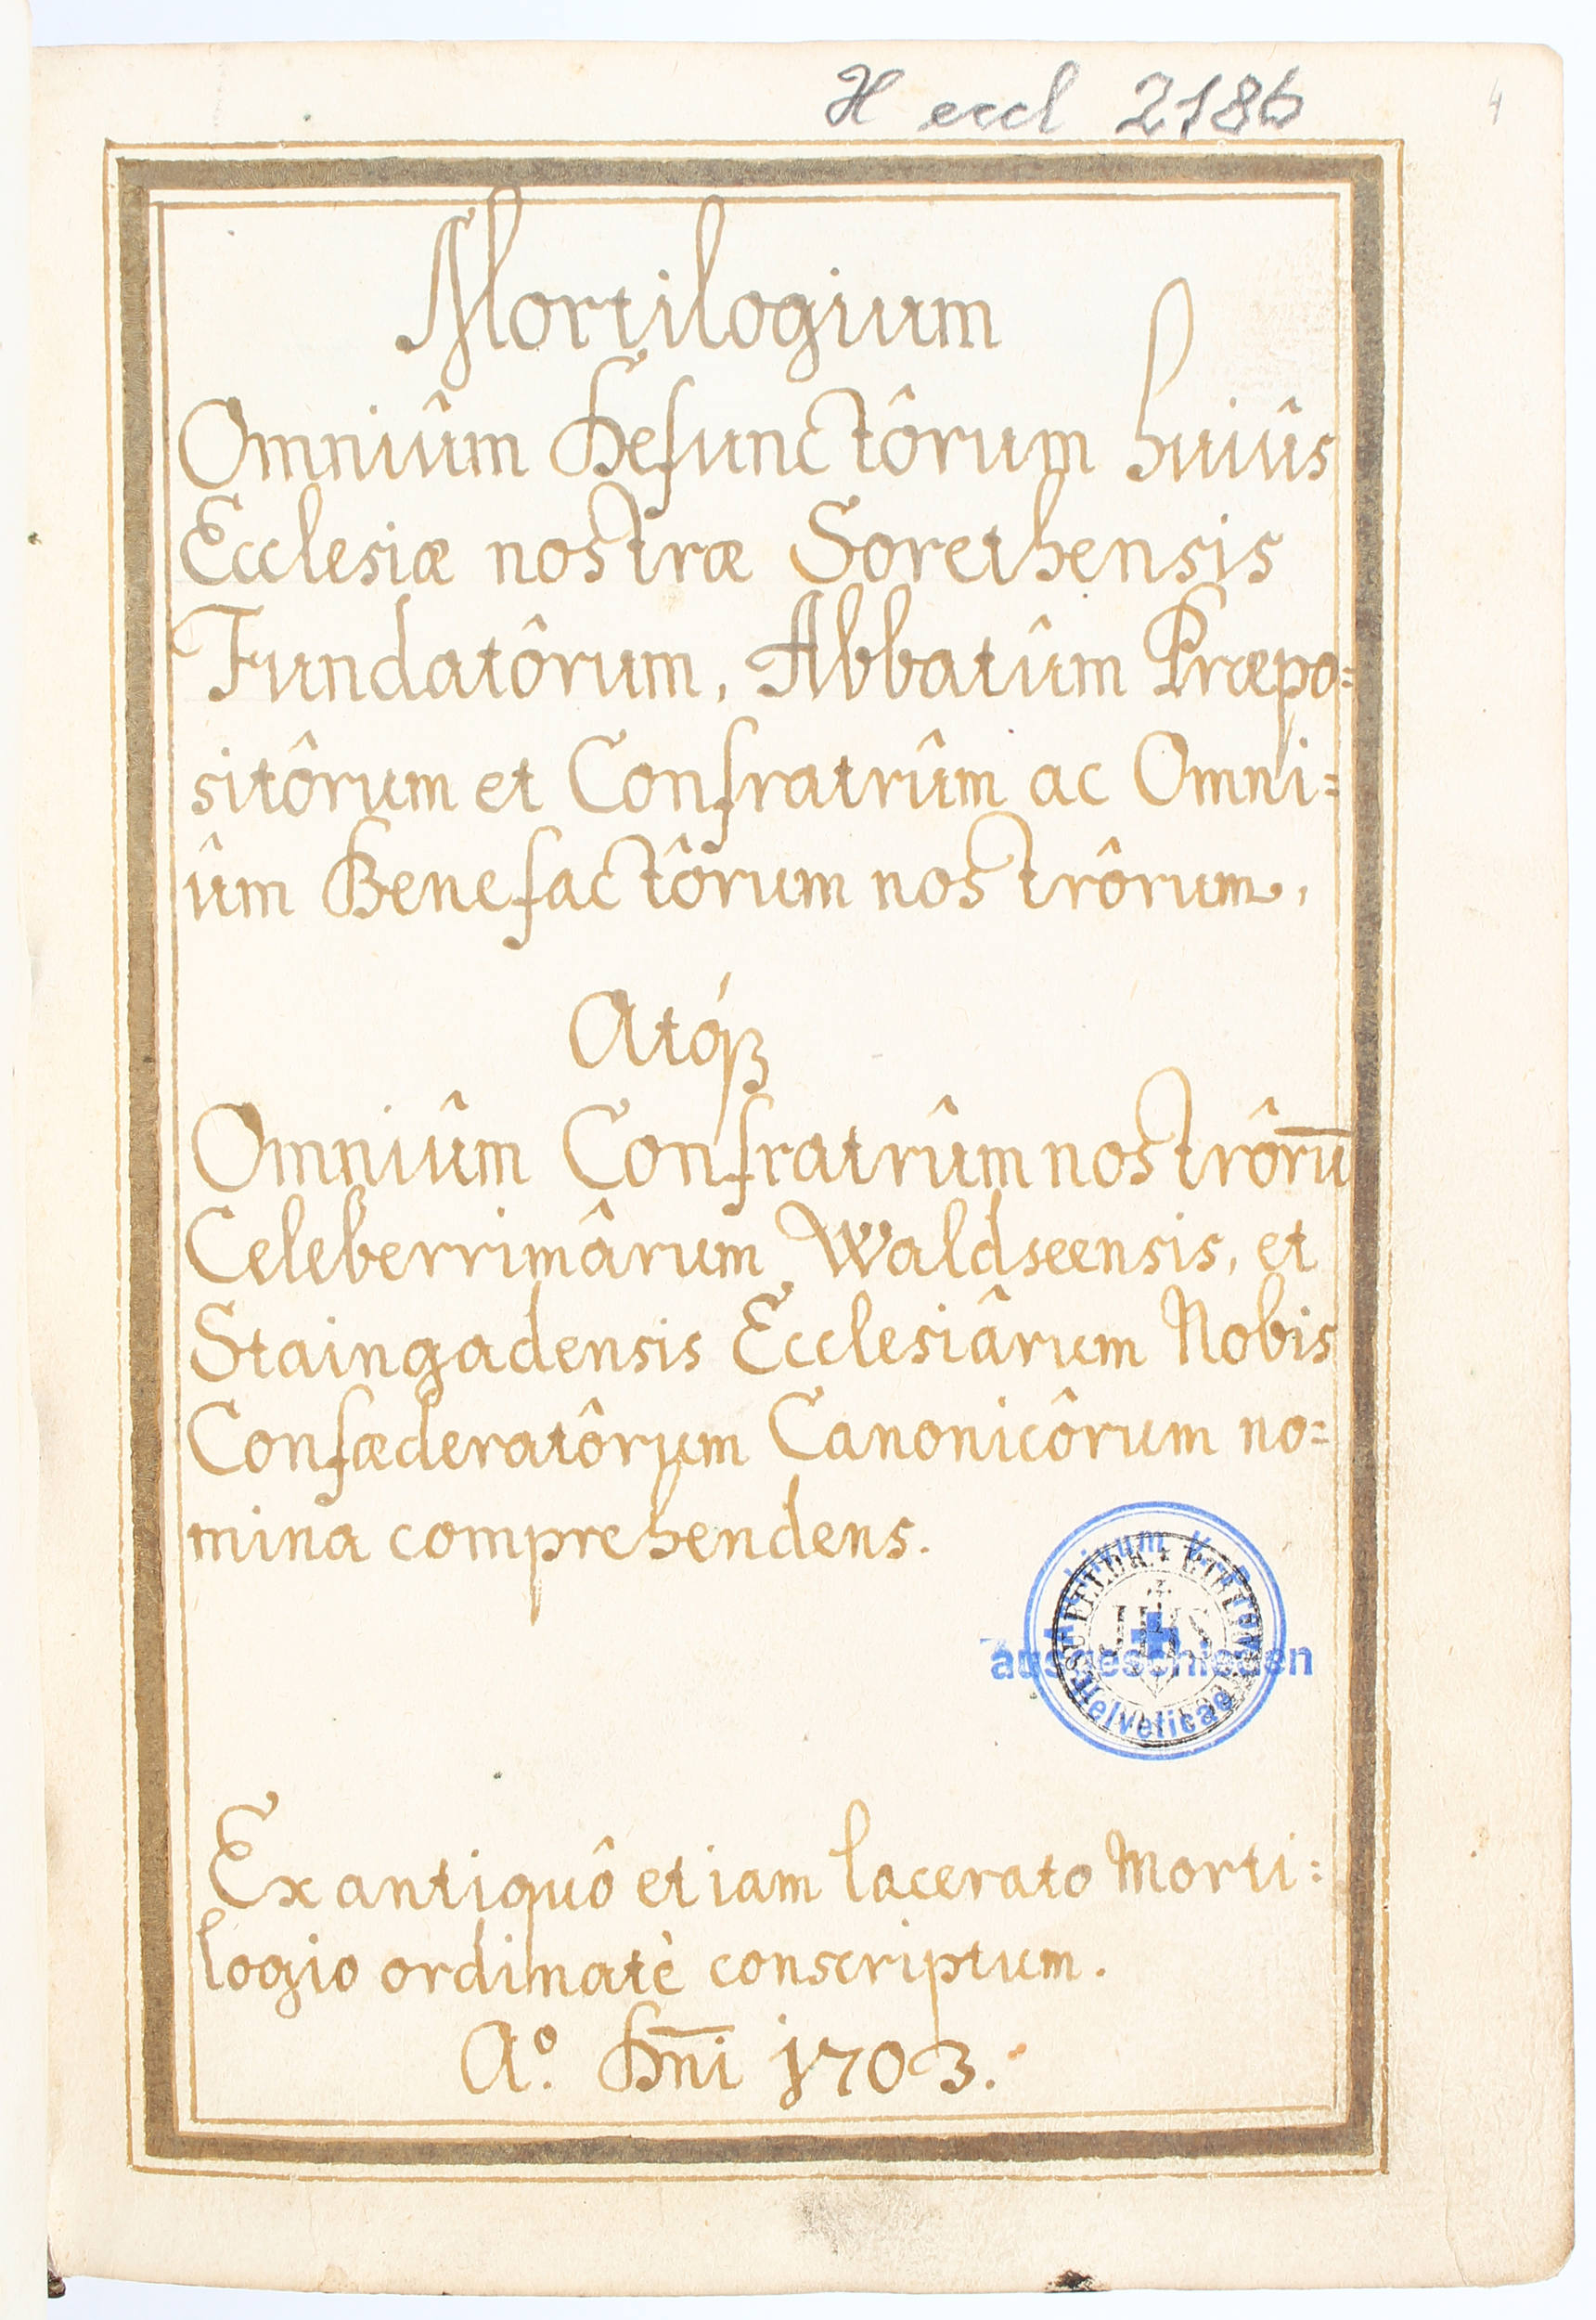 H eccl 2186
4
Mortilogium
Omniûm Defunctôrum huiûs
Ecclesiæ nostræ Sorethensis
Fundatôrum, Abbatûm Præpo=
sitôrum et Confratrûm ac Omni=
ûm Benefactôrum nostrôrum,
Atq́ꝫ
Omniûm Confratrûm nostrôrū
Celeberrimârum Waldseensis, et
Staingadensis Ecclesiârum Nobis
Confæderatôrum Canonicôrum no=
mina comprehendens.
ausgeschieden
JHS
Helveticae
Ex antiquô etiam lacerato Morti=
logio ordinatè conscriptum.
Aº. Dn̄i 1703.